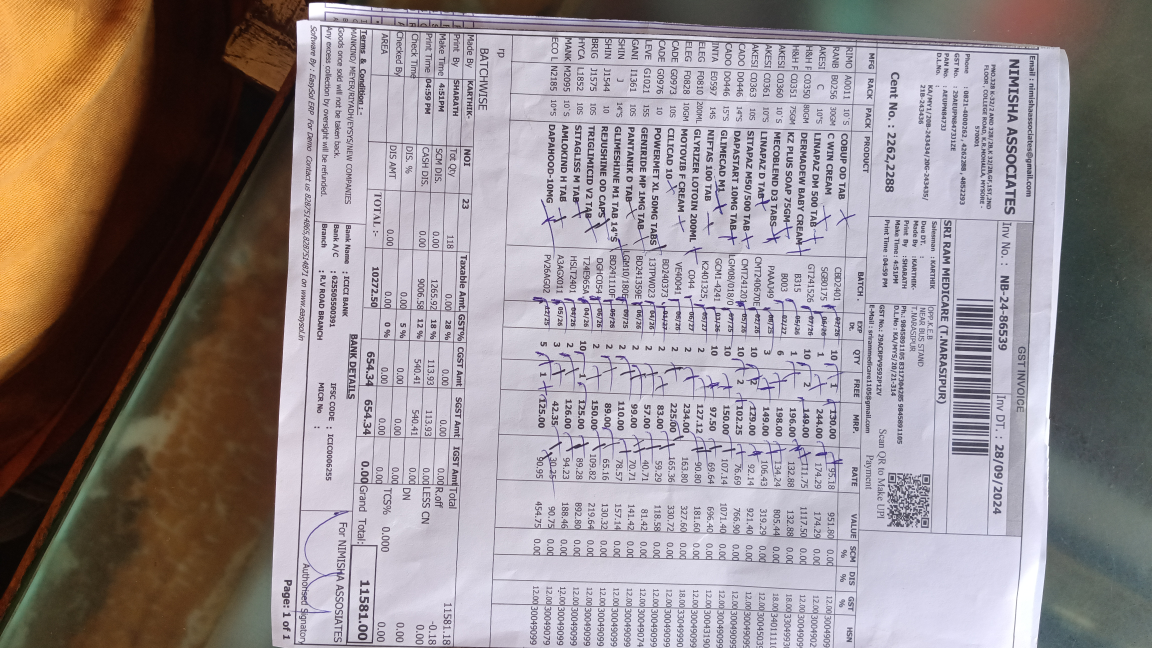 Email : nimishaassociates@gmail.com
GST INVOICE
NIMISHA ASSOCIATES
Inv No. : NB-24-8639
Inv DT. : 28/09/2024
FLOOR, COLLEGE ROAD, K.R.MOHALLA, MYSORE -
570001
Phone : 0821-4000262, 4262288, 4852293
PAN No. : AEUPN8473J
D.L.No. : KA/MY1/20B-243434/20G-243435/
21B-243436
Cent No. : 2262,2288
Salesman : KARTHIK
Due DT. :
Made By : KARTHIK
Print By : SHARATH
Make Time : 4:51PM
Print Time : 04:59 PM
SRI RAM MEDICARE (T.NARASIPUR)
OPP.K.E.B
NEAR BUS STAND
T.NARASIPUR
Ph.: 9845891105 8317304285 9845891105
DL.No.: KA/MYS/20/21-314
E-Mail : srirammedicare1105@gmail.com
Scan QR to Make UPI
Payment
MFG RACK PACK PRODUCT BATCH. EXP Dt. QTY FREE MRP. RATE VALUE SCM % DIS % GST % HSN
RIMO A0011 10`S COBUP OD TAB CBD2401 10 1 130.00 95.18 951.80 0.00 12.00
RANB B0256 30GM C WIN CREAM SGB0175 1 244.00 174.29 174.29 0.00 12.00
AKESI C 10"S LINAPAZ DM 500 TAB GT241526 10 2 149.00 111.75 1117.50 0.00 12.00
H&H F C0350 80GM DERMADEW BABY CREAM B315 1 196.00 132.88 132.88 0.00 18.00
H&H F C0315 75GM KZ PLUS SOAP 75GM B003 6 198.00 134.24 805.44 0.00 18.00
AKESI C0360 10`S MECOBLEND D3 TABS 3 149.00 106.43 319.29 0.00 12.00
AKESI C0361 10"S LINAPAZ D TAB 10 2 129.00 92.14 921.40 0.00 12.00
AKESI C0363 10S SITAPAZ M50/500 TAB 10 2 102.25 76.69 766.90 0.00 12.00
CADO D0446 14"S DAPASTART 10MG TAB 10 150.00 107.14 1071.40 0.00 12.00
CADO D0446 15"S GLIMECAD M1 GCM1-4241 10 97.50 69.64 696.40 0.00 12.00
INTA E0597 14S NIFTAS 100 TAB K2401325 2 127.12 90.80 181.60 0.00 12.00
ELEG F0810 200ML GLYRIZER LOTOIN 200ML C044 2 234.00 163.80 327.60 0.00 18.00
ELEG F0828 10GM MOTOVIB F CREAM VE40041 2 225.00 165.36 330.72 0.00 12.00
CADE G0973 10S CILECAD 10 BD240373 2 83.00 59.29 118.58 0.00 12.00 30049099
CADE G0976 10 POWERMET XL 50MG TABS 13TPW023 2 57.00 40.71 81.42 0.00 12.00 30049074
LEVE G1021 15S GENIRIDE MP 1MG TAB BD241359E 2 99.00 70.71 141.42 0.00 12.00 30049099
GANI I1361 10S PANTANIK D TAB 2 110.00 78.57 157.14 0.00 12.00 30049099
SHIN J 14"S GLIMESHINE M1 TAB 14"S 2 89.00 65.16 130.32 0.00 12.00 30049099
SHIN J1544 10 REJUSHINE OD CAPS 2 150.00 109.82 219.64 0.00 12.00 30049099
BRIG J1575 10S TRIGLIMICID V2 TAB T24E065A 10 1 125.00 89.28 892.80 0.00 12.00 30049099
HYCA L1852 10S SITAGLISS M TAB HSLT2401 2 126.00 94.23 188.46 0.00 12.00 30049099
MANK M2095 10`S AMLOKIND H TAB A3AGX011 3 42.35 30.25 90.75 0.00 12.00 30049079
ECO L N2185 10"S DAPAHOOD-10MG PV26AG02 5 1 125.00 90.95 454.75 0.00 12.00 30049099
rp
BATCHWISE
Made By : KARTHIK-
Print By : SHARATH
Make Time : 4:51PM
Print Time : 04:59 PM
Check Time :
Checked By
AREA
NOI 23
Tot Qty 118
SCM DIS. 0.00
CASH DIS. 0.00
DIS. %
DIS AMT 0.00
Taxable Amt. GST% CGST Amt SGST Amt IGST Amt
0.00 28 % 0.00 0.00 0.00
1265.92 18 % 113.93 113.93 0.00
9006.58 12 % 540.41 540.41 0.00
0.00 5 % 0.00 0.00 0.00
0.00 0 % 0.00 0.00 0.00
TOTAL :- 10272.50 654.34 654.34 0.00
Total 11581.18
R.off -0.18
LESS CN 0.00
DN 0.00
TCS% 0.000 0.00
Grand Total: 11581.00
Terms & Condition :
MANKIND/ MEYER/RIYADH/EYSYS/NEW COMPANIES
Goods once sold will not be taken back.
Any excess collection by oversight will be refunded.
BANK DETAILS
Bank Name : ICICI BANK
Bank A/C : 625505500391
Branch : R.V ROAD BRANCH
IFSC CODE : ICIC0006255
MICR No :
For NIMISHA ASSOSIATES
Authorised Signatory
Page: 1 of 1
Software By : EasySol ERP For Demo Contact us 8287514865,8287514871 on www.easysol.in